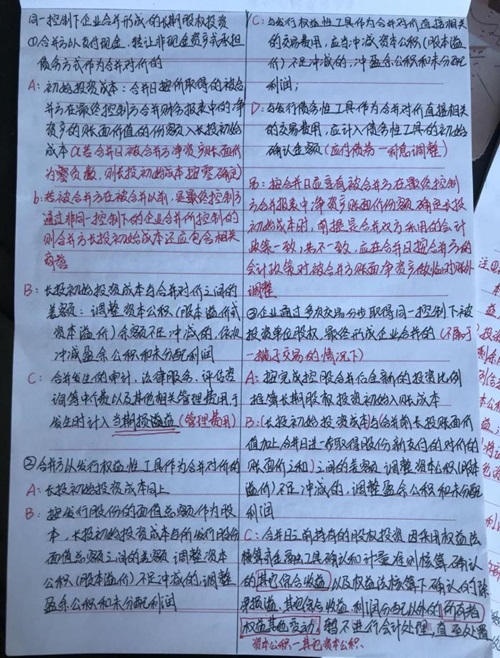 同一控制下企业合并形成的长期股权投资
①合并方以支付现金、转让非现金资产或承担
债务方式作为合并对价的
A: 初始投资成本: 合并日按价取得的被合
并方在最终控制方合并财务报表中的净
资产的账面价值的份额入长投初始
成本(若合并日被合并方净资产账面价
为零负数,则长投初始成本按零确定)
b: 若被合并方在被合并以前,是最终控制方
通过非同一控制下的企业合并所控制的
则合并方长投初始成本还应包含相关
商誉
B: 长投初始投资成本与合并对价之间的
差额: 调整资本公积(股本溢价或
资本溢价)余额不足冲减的,依次
冲减盈余公积和未分配利润
C: 合并发生的审计、法律服务、评估咨
询等中介费以及其他相关管理费用于
发生时计入当期损溢(管理费用)
②合并方以发行权益性工具作为合并对价的
A: 长投初始投资成本同上
B: 按发行股份的面值总额作为股
本,长投初始投资成本与所发行股份
面值总额之间的差额 调整资本
公积(股本溢价)不足冲减的,调整
盈余公积和未分配利润
C: 与发行权益性工具作为合并对价直接相关
的交易费用,应当冲减资本公积(股本溢
价)不足冲减的,冲盈余公积和未分配
利润;
D: 与发行债务性工具作为合并对价直接相关
的交易费用,应计入债务性工具的初始
确认金额(应付债券—利息调整)
另: 按合并日应享有被合并方在最终控制
方合并报表中净资产账面价份额确定长投
初始成本时,前提是合并双方采用的会计
政策一致,若不一致,应在合并日按合并方的
会计政策对被合并方账面净资产做临时账外
调整
③企业通过多次交易分步取得同一控制下被
投资单位股权,最终形成企业合并的(不属于
一揽子交易的情况下)
A: 按完成控股合并后全新的投资比例
推算长期股权投资初始入账成本
B: (长投初始投资成本)与(合并前长投账面价
值加上合并日进一步取得股份新支付的对价的
账面价之和)之间的差额 调整资本公积(股本
溢价)不足冲减的,调整盈余公积和未分配
利润
C: 合并日之前持有的股权投资因采用权益法
核算或金融工具确认和计量准则核算确认
的其他综合收益以及权益法核算下确认的除
净损溢、其他综合收益、利润分配以外的所有者
权益其他变动,暂不进行会计处理,直至处置
资本公积—其他资本公积.